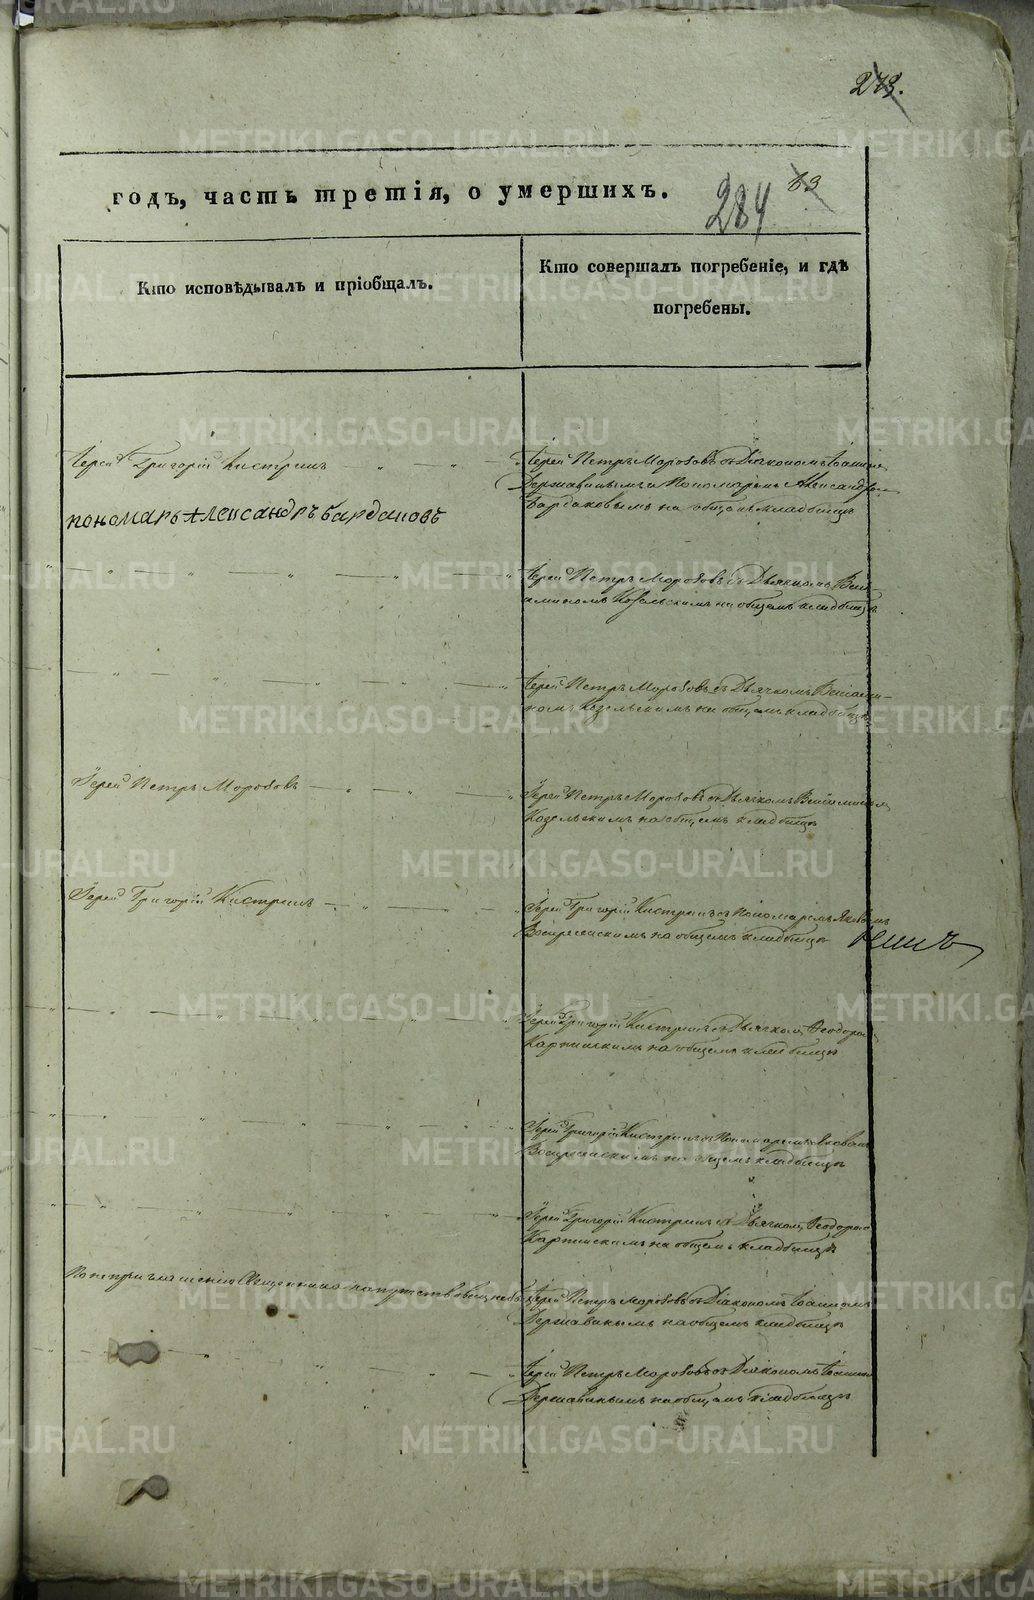 273.
годъ, часть третія, о умершихъ.
284
63
Кто исповѣдывалъ и пріобщалъ.
Кто совершалъ погребеніе, и гдѣ
погребены.
Іерей Григорій Кистринъ
Іерей Петръ Морозовъ съ Діакономъ Іоанномъ
Державинымъ и Пономаремъ Александром
Бардаковымъ на общемъ кладбищѣ
пономарь Александръ Бардаковъ
Іерей Петръ Морозовъ съ Дьячкомъ Вені-
аминомъ Козельскимъ на общемъ кладбищѣ
Іерей Петръ Морозовъ съ Дьячкомъ Веніами-
номъ Козельскимъ на общемъ кладбищѣ
Іерей Петръ Морозовъ
Іерей Петръ Морозовъ съ Дьячкомъ Веніаминомъ
Козельскимъ на общемъ кладбищѣ
Іерей Григорій Кистринъ
Іерей Григорій Кистринъ съ Пономаремъ Яковомъ
Воскресенскимъ на общемъ кладбищѣ
Іерей Григорій Кистринъ съ Дьячком Ѳеодоромъ
Карпинскимъ на общемъ кладбищѣ
Іерей Григорій Кистринъ съ Пономаремъ Яковомъ
Воскресенскимъ на общемъ кладбищѣ
Іерей Григорій Кистринъ съ Дьячком Ѳеодоромъ
Карпинскимъ на общемъ кладбищѣ
Священника
Іерей Петръ Морозовъ съ Діакономъ Іоанномъ
Державинымъ на общемъ кладбищѣ
Іерей Петръ Морозовъ съ Діакономъ Іоанномъ
Державинымъ на общемъ кладбищѣ
METRIKI.GASO-URAL.RU